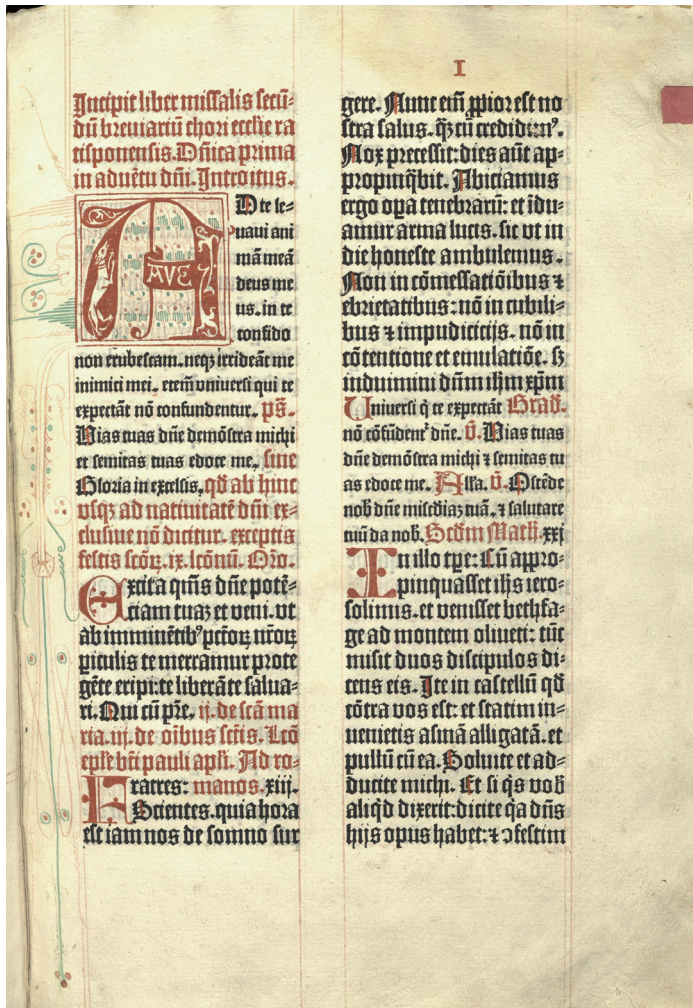 I
Incipit liber missalis secū-
dū breviariū chori ecclīe ra
tisponensis. Dn̄ica prima
in advētu dn̄i. Introitus.
AVE
AD te le-
vavi ani
mā meā
deus me
us. in te
confido
non erubescam. neqꝫ irrideāt me
inimici mei. etem̄ vniversi qui te
expectāt nō confundentur. ps̄.
Vias tuas dn̄e demōstra michi
et semitas tuas edoce me. sine
Gloria in excelsis. qd̄ ab hinc
vsqꝫ ad nativitatē dn̄i ex-
clusive nō dicitur. exceptis
festis scōꝝ. ix. lc̄onū. Or̄o.
Excita qm̄s dn̄e potē-
ciam tuaꝫ et veni. vt
ab imminētibꝰ pctōꝝ nr̄oꝝ
ꝑiculis te mereamur prote
gēte eripi: te liberāte salua-
ri. Qui cū pr̄e. ij. de sctā ma
ria. iij. de oībus sctīs. Lc̄o
epl̄e bt̄i pauli apl̄i. Ad ro-
Fratres: manos. xiij.
Scientes. quia hora
est iam nos de somno sur
gere. Nunc em̄ ꝓpior est no
stra salus. qꝫ̄ cū credidimꝰ.
Nox precessit: dies aūt ap-
propinq̄bit. Abiciamus
ergo oꝑa tenebrarū: et īdu-
amur arma lucis. sic vt in
die honeste ambulemus.
Non in cōmessatiōibus ⁊
ebrietatibus: nō in cubili-
bus ⁊ impudicicijs. nō in
cōtentione et emulatiōe. sꝫ
induimini dn̄m ihm̄ xp̄m
Universi q̄ te expectāt Grad̄.
nō cōfūdent᷑ dn̄e. v̄. Vias tuas
dn̄e demōstra michi ⁊ semitas tu
as edoce me. All̄a. v̄. Ostēde
nob̄ dn̄e mīcdiaꝫ tuā. ⁊ salutare
tuū da nob̄. Scdm̄ Math̄. xxj
In illo tꝑe: Cū appro-
pinquasset ih̄s iero-
solimis. et venisset bethfa-
ge ad montem oliveti: tūc
misit duos discipulos di-
cens eis. Ite in castellū qd̄
cōtra vos est: et statim in-
venietis asinā alligatā. et
pullū cū ea. Solvite et ad-
ducite michi. Et si q̄s vob̄
aliq̄d dixerit: dicite q̄a dn̄s
hijs opus habet: ⁊ ↄfestim